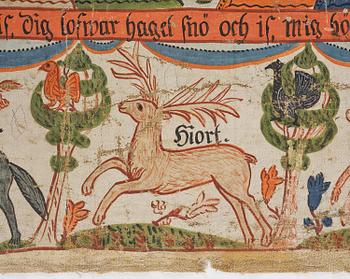 is, dig lofwar hagel snö och is, mig hö
Hiort.